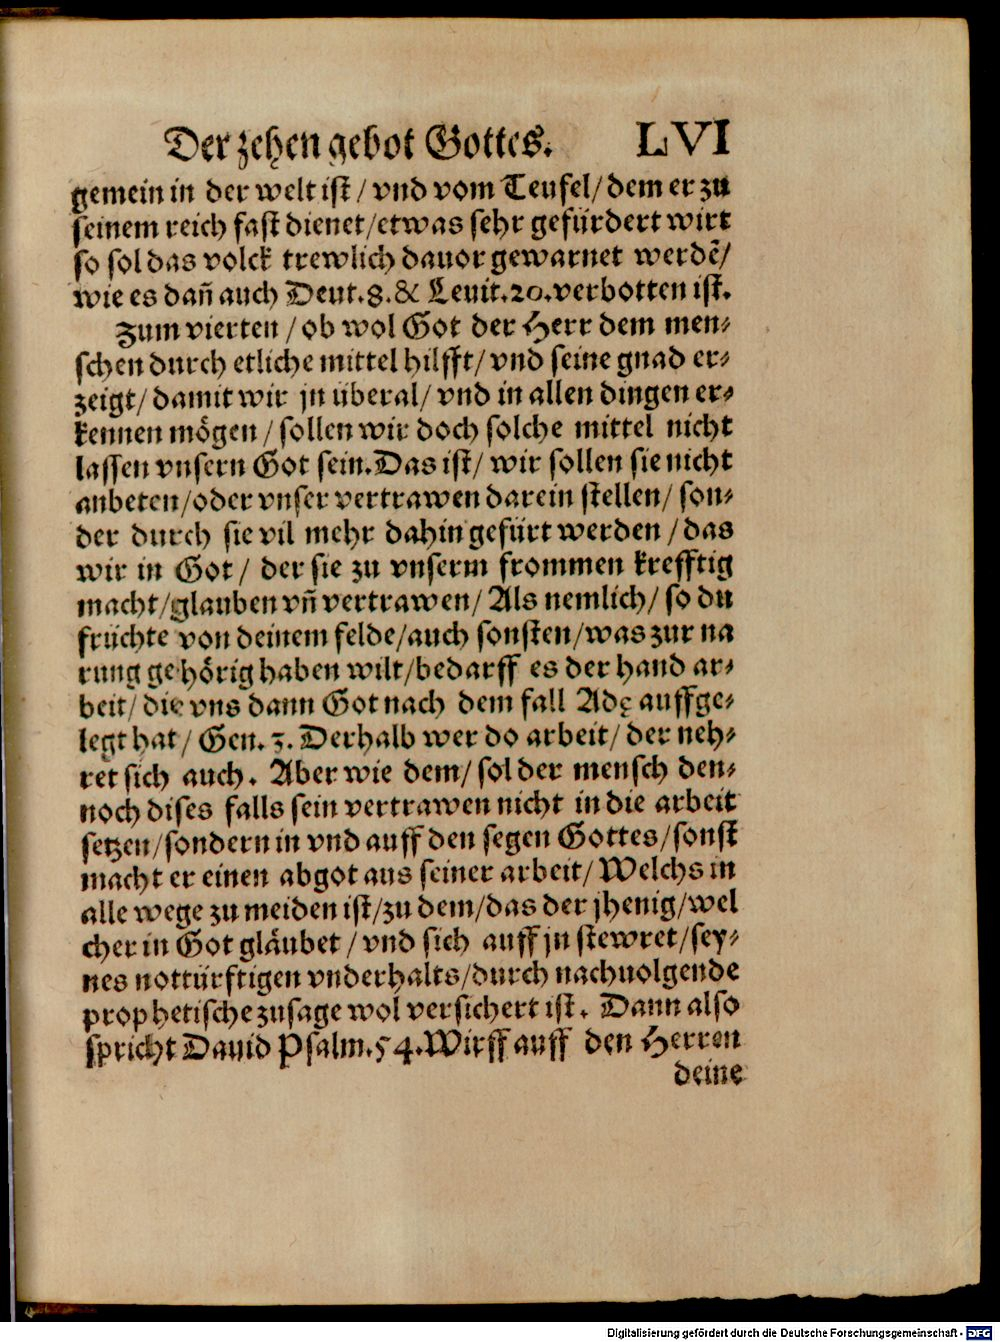 Der zehen gebot Gottes. LVI
gemein in der welt ist/ vnd vom Teufel/ dem er zu
seinem reich fast dienet/etwas sehr gefürdert wirt
so sol das volck trewlich dauor gewarnet werdẽ/
wie es dañ auch Deut.8.& Leuit.20.verbotten ist.
Zum vierten / ob wol Got der Herr dem men-
schen durch etliche mittel hilfft/ vnd seine gnad er-
zeigt/ damit wir jn überal/ vnd in allen dingen er-
kennen mögen / sollen wir doch solche mittel nicht
lassen vnsern Got sein. Das ist/ wir sollen sie nicht
anbeten/oder vnser vertrawen darein stellen/ son-
der durch sie vil mehr dahin gefürt werden / das
wir in Got/ der sie zu vnserm frommen krefftig
macht/glauben vñ vertrawen/ Als nemlich/ so du
früchte von deinem felde/auch sonsten/was zur na
rung gehörig haben wilt/bedarff es der hand ar-
beit/ die vns dann Got nach dem fall Adę auffge-
legt hat/ Gen. 3. Derhalb wer do arbeit/ der neh-
ret sich auch. Aber wie dem/ sol der mensch den-
noch dises falls sein vertrawen nicht in die arbeit
setzen/sondern in vnd auff den segen Gottes/sonst
macht er einen abgot aus seiner arbeit/ Welchs in
alle wege zu meiden ist/zu dem/das der jhenig/wel
cher in Got gläubet / vnd sich auff jn stewret/sey-
nes nottürftigen vnderhalts/durch nachuolgende
prophetische zusage wol versichert ist. Dann also
spricht Dauid Psalm.54.Wirff auff den Herren
deine
Digitalisierung gefördert durch die Deutsche Forschungsgemeinschaft - DFG